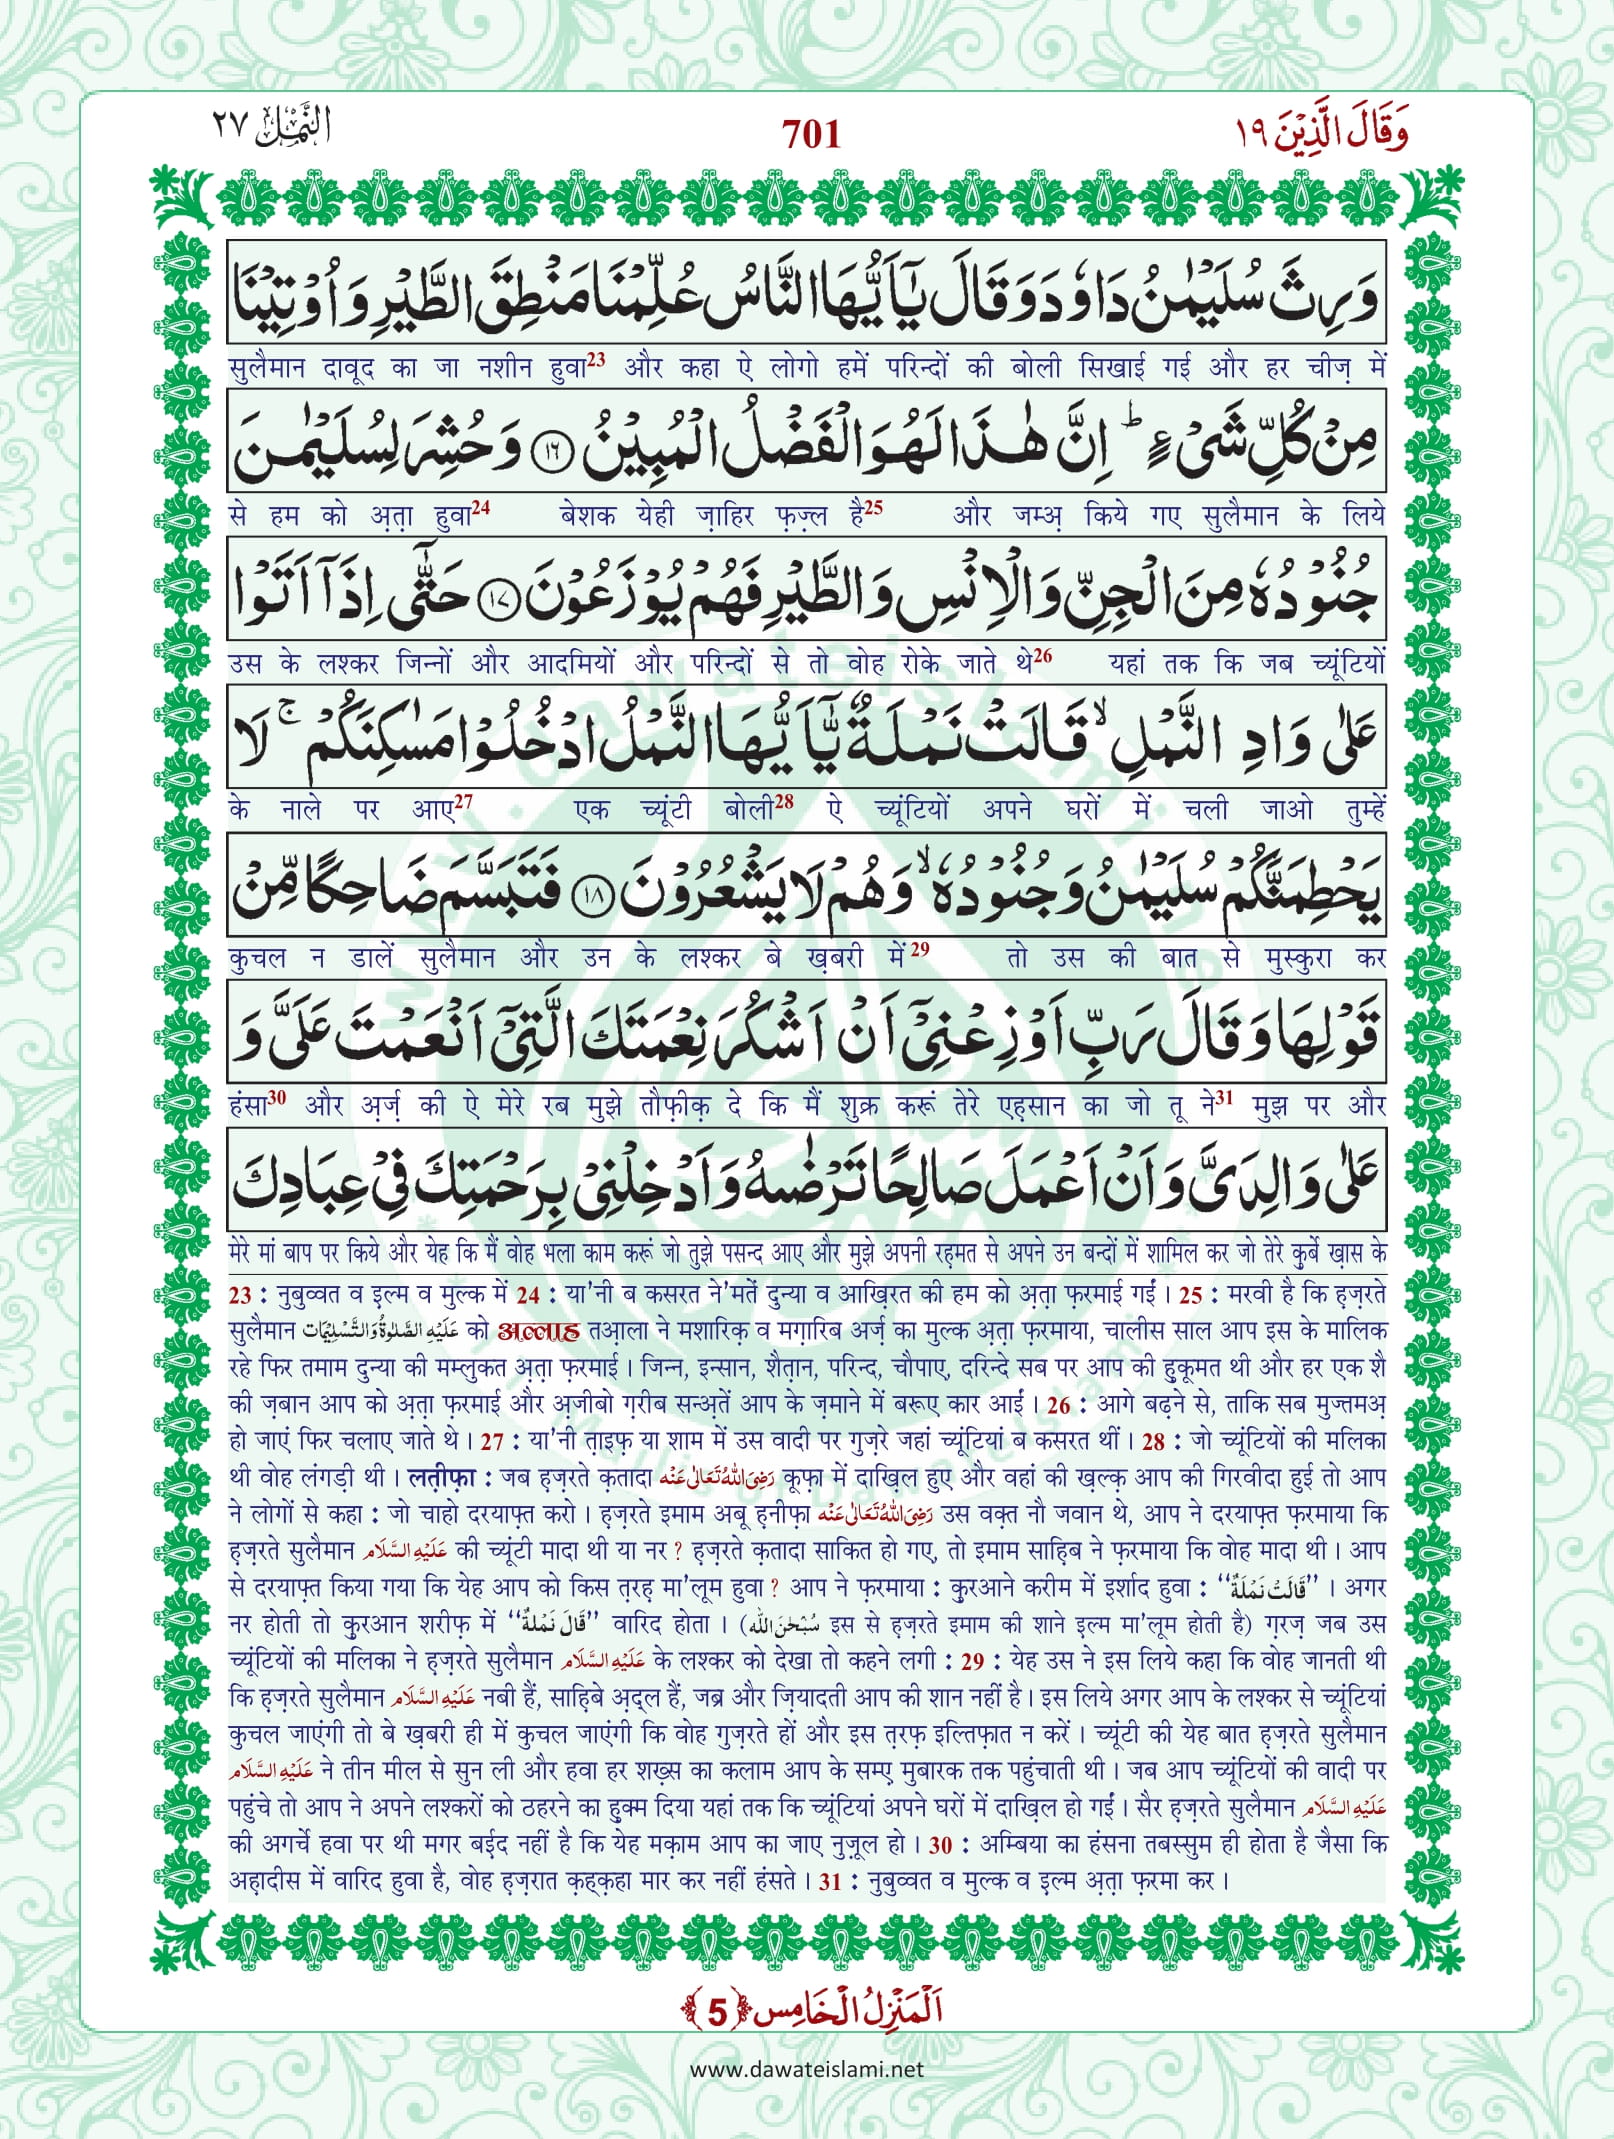 النَّمْل ٢٧
701
وَقَالَ الَّذِيْنَ ١٩
وَوَرِثَ سُلَيْمٰنُ دَاوٗدَ وَقَالَ يٰۤاَيُّهَا النَّاسُ عُلِّمْنَا مَنْطِقَ الطَّيْرِ وَاُوْتِيْنَا
सुलैमान दावूद का जा नशीन हुवा23 और कहा ऐ लोगो हमें परिन्दों की बोली सिखाई गई और हर चीज़ में
مِنْ كُلِّ شَىْءٍؕ اِنَّ هٰذَا لَهُوَ الْفَضْلُ الْمُبِيْنُ ﴿١٦﴾ وَحُشِرَ لِسُلَيْمٰنَ
से हम को अ़त़ा हुवा24 बेशक येही ज़ाहिर फ़ज़्ल है25 और जम्अ़ किये गए सुलैमान के लिये
جُنُوْدُهٗ مِنَ الْجِنِّ وَالْاِنْسِ وَالطَّيْرِ فَهُمْ يُوْزَعُوْنَ ﴿١٧﴾ حَتّٰۤى اِذَاۤ اَتَوْا
उस के लश्कर जिन्नों और आदमियों और परिन्दों से तो वोह रोके जाते थे26 यहां तक कि जब च्यूंटियों
عَلٰى وَادِ النَّمْلِۙ قَالَتْ نَمْلَةٌ يّٰۤاَيُّهَا النَّمْلُ ادْخُلُوْا مَسٰكِنَكُمْۚ لَا
के नाले पर आए27 एक च्यूंटी बोली28 ऐ च्यूंटियों अपने घरों में चली जाओ तुम्हें
يَحْطِمَنَّكُمْ سُلَيْمٰنُ وَجُنُوْدُهٗۙ وَهُمْ لَا يَشْعُرُوْنَ ﴿١٨﴾ فَتَبَسَّمَ ضَاحِكًا مِّنْ
कुचल न डालें सुलैमान और उन के लश्कर बे ख़बरी में29 तो उस की बात से मुस्कुरा कर
قَوْلِهَا وَقَالَ رَبِّ اَوْزِعْنِىْۤ اَنْ اَشْكُرَ نِعْمَتَكَ الَّتِىْۤ اَنْعَمْتَ عَلَىَّ وَ
हंसा30 और अ़र्ज़ की ऐ मेरे रब मुझे तौफ़ीक़ दे कि मैं शुक्र करूं तेरे एह़सान का जो तू ने31 मुझ पर और
عَلٰى وَالِدَىَّ وَاَنْ اَعْمَلَ صَالِحًا تَرْضٰىهُ وَاَدْخِلْنِىْ بِرَحْمَتِكَ فِىْ عِبَادِكَ
मेरे मां बाप पर किये और येह कि मैं वोह भला काम करूं जो तुझे पसन्द आए और मुझे अपनी रह़मत से अपने उन बन्दों में शामिल कर जो तेरे कुर्बे ख़ास के
23 : नुबुव्वत व इ़ल्म व मुल्क में 24 : या'नी ब कसरत ने'मतें दुन्या व आख़िरत की हम को अ़त़ा फ़रमाई गईं । 25 : मरवी है कि ह़ज़रते
सुलैमान عَلَيْهِ الصَّلٰوةُ وَالتَّسْلِيْمَات को अल्लाह तआ़ला ने मशारिक़ व मग़ारिब अर्ज़ का मुल्क अ़त़ा फ़रमाया, चालीस साल आप इस के मालिक
रहे फिर तमाम दुन्या की मम्लुकत अ़त़ा फ़रमाई । जिन्न, इन्सान, शैत़ान, परिन्द, चौपाए, दरिन्दे सब पर आप की ह़ुकूमत थी और हर एक शै
की ज़बान आप को अ़त़ा फ़रमाई और अ़जीबो ग़रीब सन्अ़तें आप के ज़माने में बरूए कार आईं । 26 : आगे बढ़ने से, ताकि सब मुज्तमअ़
हो जाएं फिर चलाए जाते थे । 27 : या'नी त़ाइफ़ या शाम में उस वादी पर गुज़रे जहां च्यूंटियां ब कसरत थीं । 28 : जो च्यूंटियों की मलिका
थी वोह लंगड़ी थी । लत़ीफ़ा : जब ह़ज़रते क़तादा رَضِىَ اللّٰهُ تَعَالٰى عَنْه कूफ़ा में दाख़िल हुए और वहां की ख़ल्क़ आप की गिरवीदा हुई तो आप
ने लोगों से कहा : जो चाहो दरयाफ़्त करो । ह़ज़रते इमाम अबू ह़नीफ़ा رَضِىَ اللّٰهُ تَعَالٰى عَنْه उस वक़्त नौ जवान थे, आप ने दरयाफ़्त फ़रमाया कि
ह़ज़रते सुलैमान عَلَيْهِ السَّلَام की च्यूंटी मादा थी या नर ? ह़ज़रते क़तादा साकित हो गए, तो इमाम साह़िब ने फ़रमाया कि वोह मादा थी । आप
से दरयाफ़्त किया गया कि येह आप को किस त़रह़ मा'लूम हुवा ? आप ने फ़रमाया : कुरआने करीम में इर्शाद हुवा : ‘‘قَالَتْ نَمْلَةٌ’’ । अगर
नर होती तो कुरआन शरीफ़ में ‘‘قَالَ نَمْلَةٌ’’ वारिद होता । (سُبْحٰنَ اللّٰه इस से ह़ज़रते इमाम की शाने इ़ल्म मा'लूम होती है) ग़रज़ जब उस
च्यूंटियों की मलिका ने ह़ज़रते सुलैमान عَلَيْهِ السَّلَام के लश्कर को देखा तो कहने लगी : 29 : येह उस ने इस लिये कहा कि वोह जानती थी
कि ह़ज़रते सुलैमान عَلَيْهِ السَّلَام नबी हैं, साह़िबे अ़द्ल हैं, जब्र और ज़ियादती आप की शान नहीं है । इस लिये अगर आप के लश्कर से च्यूंटियां
कुचल जाएंगी तो बे ख़बरी ही में कुचल जाएंगी कि वोह गुज़रते हों और इस त़रफ़ इल्तिफ़ात न करें । च्यूंटी की येह बात ह़ज़रते सुलैमान
عَلَيْهِ السَّلَام ने तीन मील से सुन ली और हवा हर शख़्स का कलाम आप के सम्ए मुबारक तक पहुंचाती थी । जब आप च्यूंटियों की वादी पर
पहुंचे तो आप ने अपने लश्करों को ठहरने का ह़ुक्म दिया यहां तक कि च्यूंटियां अपने घरों में दाख़िल हो गईं । सैर ह़ज़रते सुलैमान عَلَيْهِ السَّلَام
की अगर्चे हवा पर थी मगर बईद नहीं है कि येह मक़ाम आप का जाए नुज़ूल हो । 30 : अम्बिया का हंसना तबस्सुम ही होता है जैसा कि
अह़ादीस में वारिद हुवा है, वोह ह़ज़रात क़ह्क़हा मार कर नहीं हंसते । 31 : नुबुव्वत व मुल्क व इ़ल्म अ़त़ा फ़रमा कर ।
اَلْمَنْزِلُ الْخَامِس ﴿5﴾
www.dawateislami.net